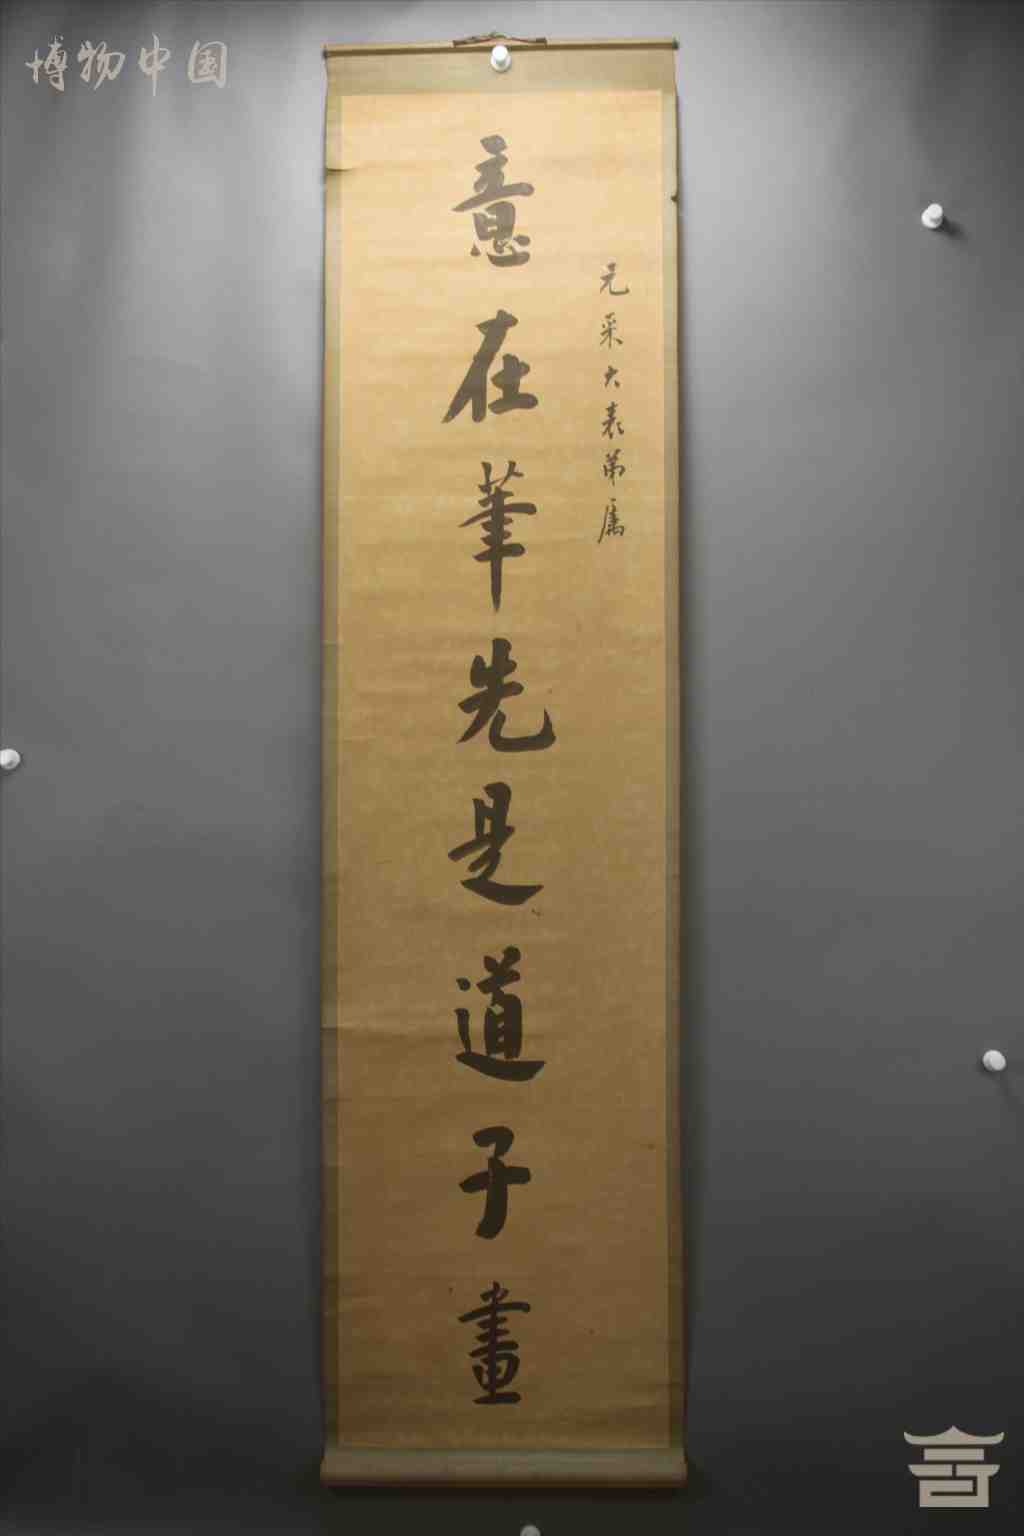 博物中国
元采大表弟属
意在筆先是道子畫